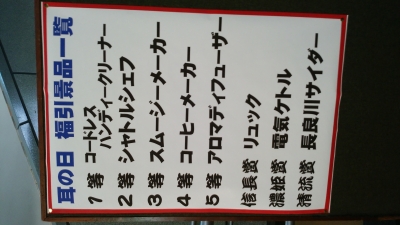 耳の日 福引景品一覧
1等 コードレス
ハンディークリーナー
2等 シャトルシェフ
3等 スムージーメーカー
4等 コーヒーメーカー
5等 アロマディフューザー
信長賞 リュック
濃姫賞 電気ケトル
清流賞 長良川サイダー